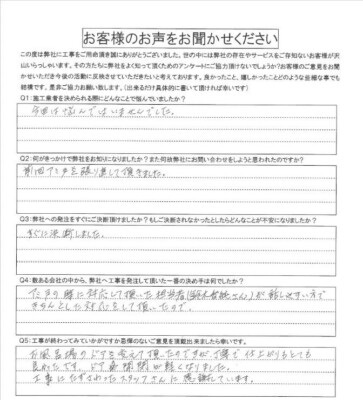 お客様のお声をお聞かせください
この度は弊社に工事をご用命頂き誠にありがとうございました。世の中には弊社の存在やサービスをご存知ないお客様が沢
山いらっしゃいます。その方たちに弊社をよく知って頂くためのアンケートにご協力頂けないでしょうか?お客様のご意見をお聞
かせいただき今後の活動に反映させていただきたいと考えております。良かったこと、嬉しかったことのような些細な事でも
結構です。是非ご協力お願い致します。(出来るだけ具体的に書いて頂ければ幸いです)
Q1:施工業者を決められる際にどんなことで悩んでいましたか?
今回は悩んではいませんでした。
Q2:何がきっかけで弊社をお知りになりましたか?また何故弊社にお問い合わせをしようと思われたのですか?
前回アミ戸を張り直して頂きました。
Q3:弊社への発注をすぐにご決断頂けましたか?もしご決断されなかったとしたらどんなことが不安になりましたか?
すぐに決断しました。
Q4:数ある会社の中から、弊社へ工事を発注して頂いた一番の決め手は何でしたか?
アミ戸の時に対応して頂いた担当者が話しやすい方で
きちんとした対応をして頂いたので。
Q5:工事が終わってみていかがですか忌憚のないご意見を頂戴出来ましたら幸いです。
お風呂場のドアを変えて頂いたのですが、丁寧で仕上がりもとても
良かったです。ドア開閉が軽くなりました。
工事にたずさわったスタッフさんに感謝しています。